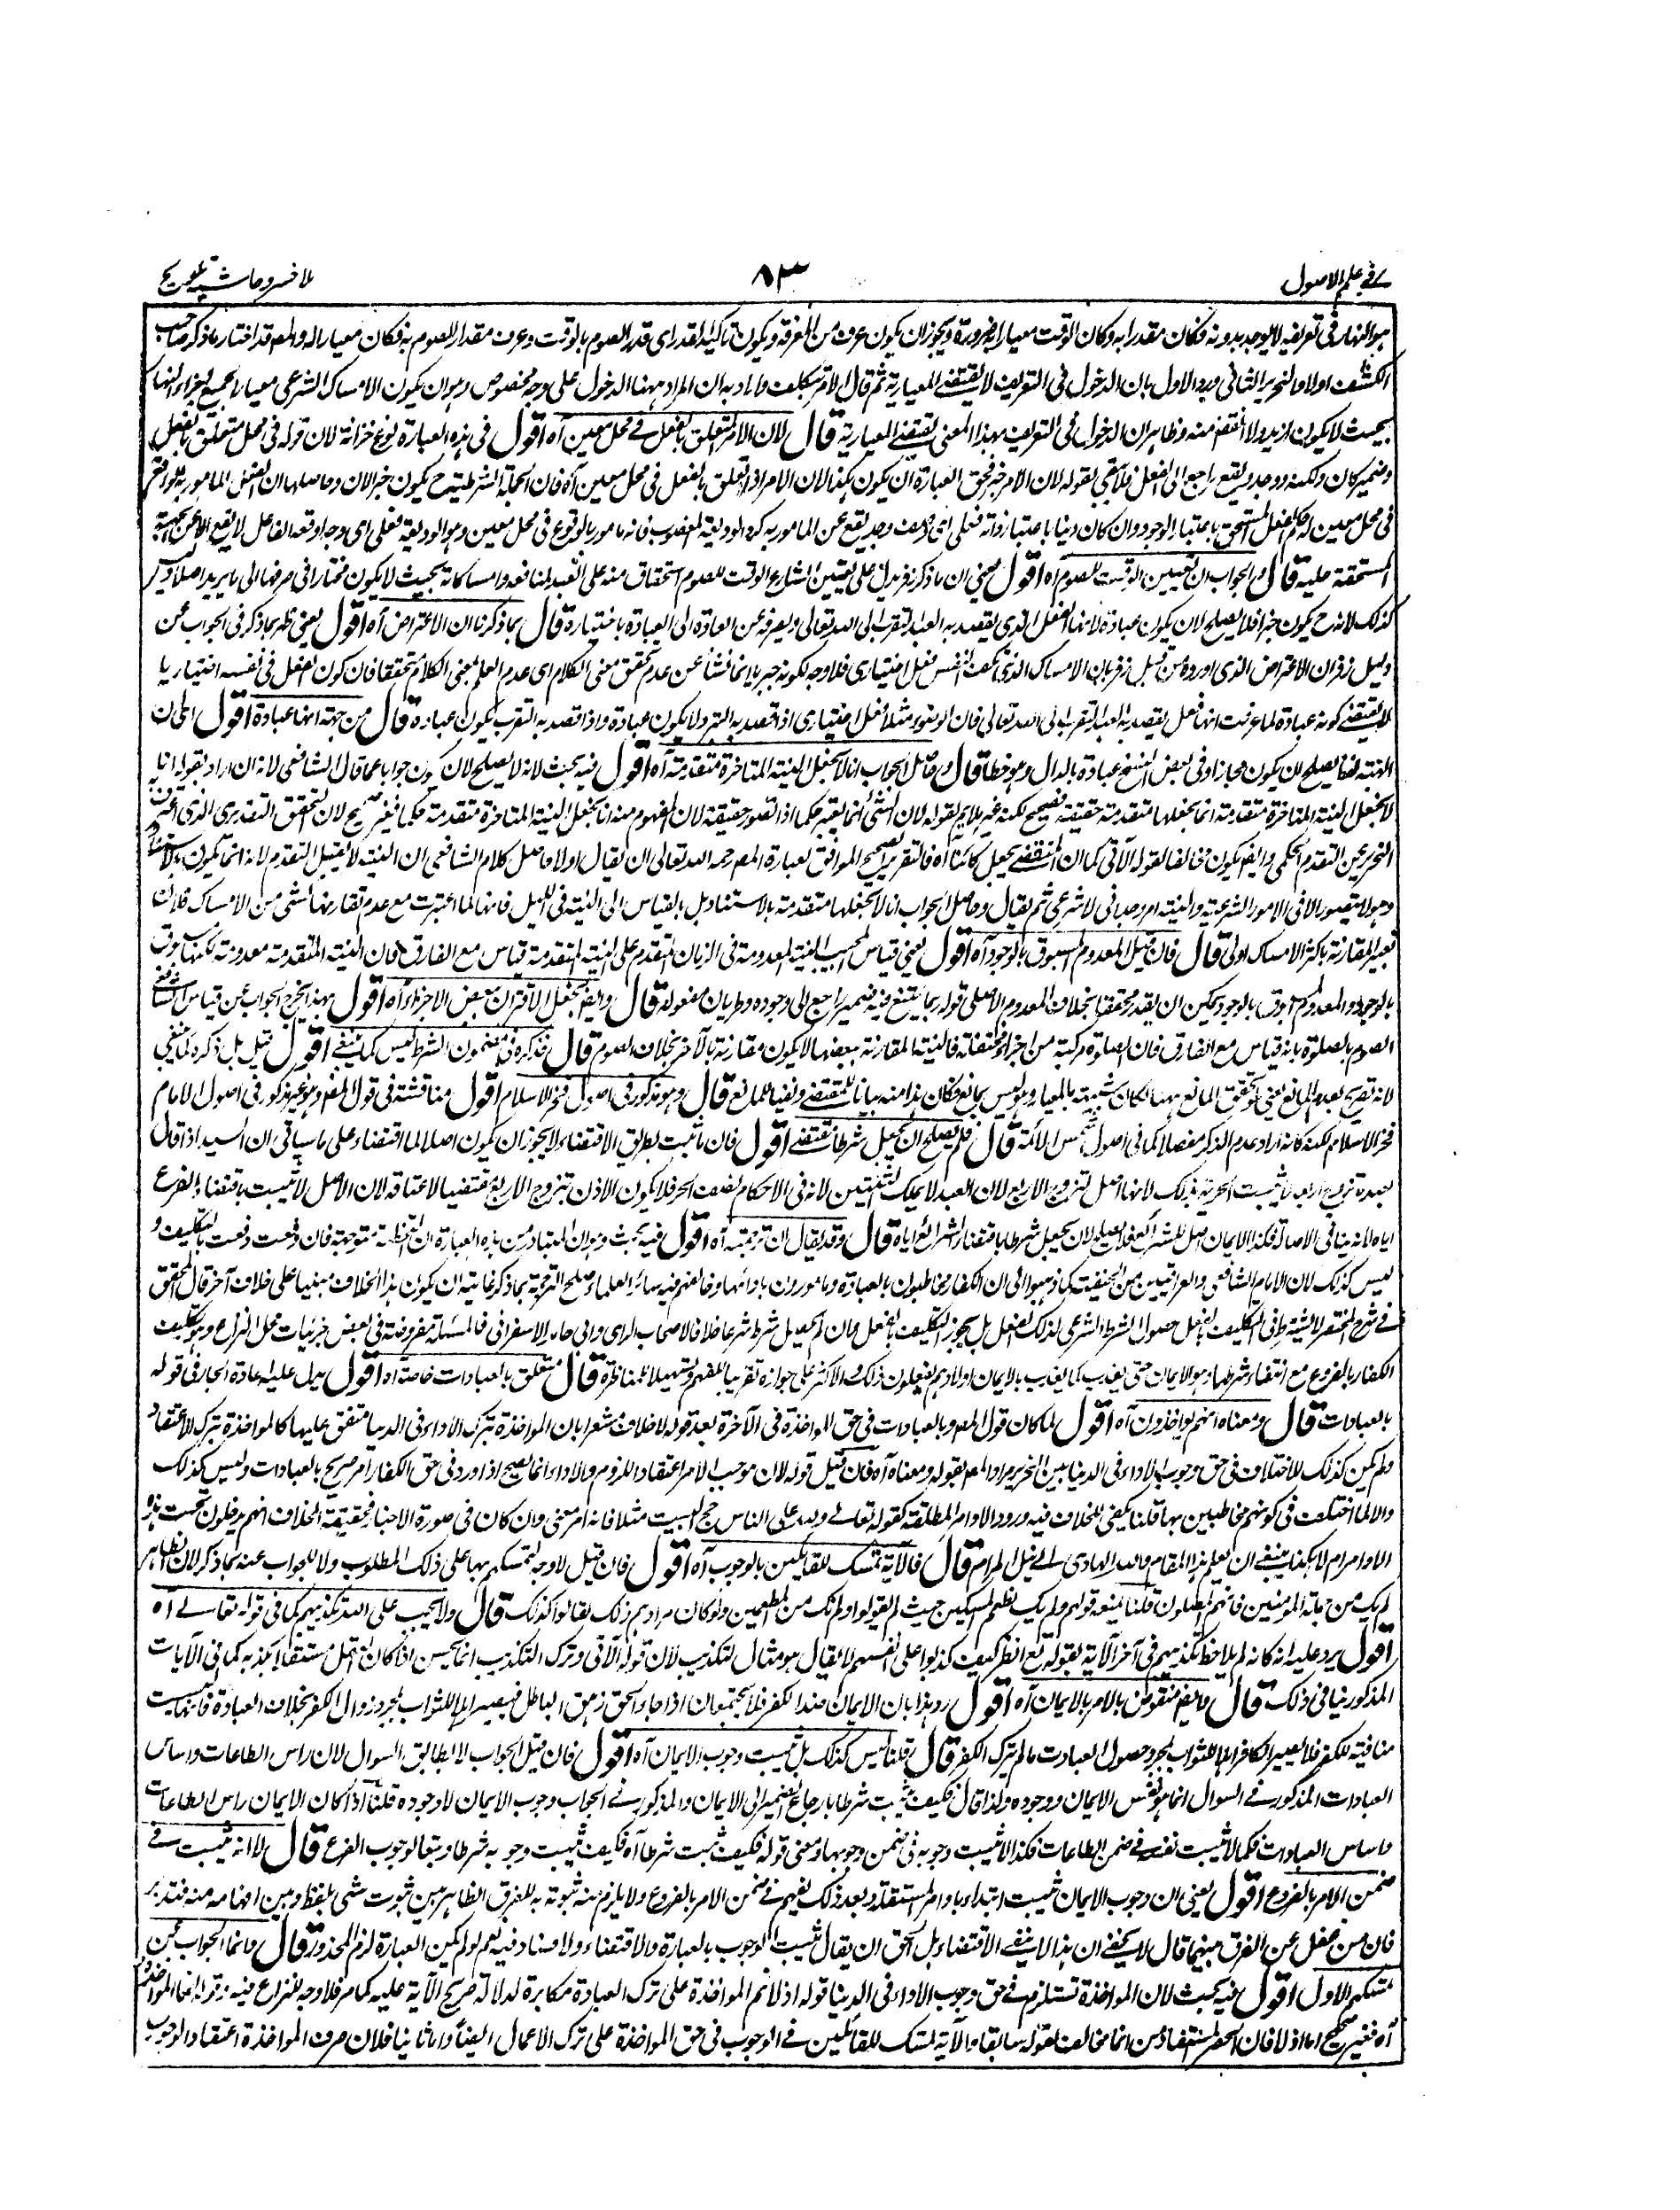 في علم الاصول
٨٣
ملا خسرو حاشية تلويح
هو النهار في تعريفه لا يوجد بدونه فكان مقدرا به وكان الوقت معيارا له ضرورة ويجوز ان يكون عرف من المعرفة ويكون تاكيدا لقدر اي قدر الصوم بالوقت وعرف مقدار الصوم به فكان معيارا له والمص قد اختار ما ذكر صاحب
الكشف اولا والنحرير الثاني ورد الاول بان الدخول في التعريف لا يقتضي المعيارية ثم قال الامر تكلف واراد به ان المراد ههنا الدخول على وجه مخصوص وهو ان يكون الامساك الشرعي معيارا لجميع اجزاء النهار
بحيث لا يكون ازيد ولا انقص منه وظاهر ان الدخول في التعريف بهذا المعنى يقتضي المعيارية قال لان الامر المتعلق بالفعل في محل معين آه اقول في هذه العبارة نوع خزازة لان قوله في محل متعلق بالفعل
وضمير كان ولكنه ووجد ويقع راجع الى الفعل فلا يبقى لقوله لان الامر خبر فحق العبارة ان يكون هكذا لان الامر اذا تعلق بالفعل في محل معين آه فان الجملة الشرطية ح يكون خبر الان وحاصلها ان الفعل المامور به لو اقع
في محل معين له حكم الفعل المستحق باعتبار الوجود وان كان دينا باعتبار ذاته فعلى اي وصف وجد يقع عن المامور به كرد الوديعة والمغصوب فانه مامور بالوقوع في محل معين وهو الوديعة فعلى اي وجه اوقعه الفاعل لا يقع الا عن الجهة
المستحقة عليه قال والجواب ان تعيين الوقت للصوم آه اقول يعني ان ما ذكر زفر يدل على تعيين الشارع الوقت للصوم استحقاق منه على العبد لمنافعه وامساكاته بحيث لا يكون مختارا في صرفها الى ما يريد اصلا وليس
كذلك لانه ح يكون جبرا فلا يصلح لان يكون عبادة لانها الفعل الذي يقصد به العبد التقرب الى الله تعالى ويصرفه عن العادة الى العبادة باختياره قال بما ذكرنا ان الاعتراض آه اقول يعني ظهر بما ذكر في الجواب عن
دليل زفر ان الاعتراض الذي اورده من قبل زفر بان الامساك الذي هو كف النفس فعل اختياري فلا وجه لكونه جبريا انما نشأ عن عدم تحقق معنى الكلام اي عدم العلم بمعنى الكلام متحققا فان كون الفعل في نفسه اختياريا
لا يقتضي كونه عبادة لما عرفت انها فعل يقصد به العبد التقرب الى الله تعالى فان الوضوء مثلا فعل اختياري اذا قصد به التبرد لا يكون عبادة واذا قصد به التقرب يكون عبادة قال من جهة انها عبادة اقول اي لان
النية فعلها يصلح ان يكون مجازا وفي بعض النسخ عبادة بالدال وهو خطا قال وحاصل الجواب انا لا نجعل النية المتاخرة متقدمة آه اقول فيه بحث لانه لا يصلح لان يكون جوابا عما قال الشافعي لانه ان اراد بقوله انا
لا نجعل النية المتاخرة متقدمة انما نجعلها متقدمة حقيقة فصحيح لكنه غير ملايم لقوله لان الشئ انما يعتبر حكما اذا تصور حقيقة لان المفهوم منه انا نجعل النية المتاخرة متقدمة حكما فغير صحيح لان التحقق التقديري الذي اعترف
النحرير عين التقدم الحكمي وايضا يكون مخالفا لقوله الآتي كما ان المنقضي يجعل كائنا آه فالتقرير الصحيح الموافق لعبارة المص رحمه الله تعالى ان يقال اولا حاصل كلام الشافعي ان النية لا تقبل التقدم لانه انما يكون بالاستناد
وهو لا يتصور الا في الامور الشرعية والنية امر وجداني لا شرعي ثم يقال وحاصل الجواب انا لا نجعلها متقدمة بالاستناد بل بالقياس الى النية في الليل فانها لما اعتبرت مع عدم تقارنها لشئ من الامساك فلان
تعبر المقارنة باكثر الامساك اولى قال فان قيل المعدوم المسبوق بالوجود آه اقول يعني قياس المجيب النية المعدومة في الزمان المتقدم على النية المتقدمة قياس مع الفارق فان النية المتقدمة معدومة لكنها مسبوقة
بالوجود والمعدوم المسبوق بالوجود يمكن ان يقدر محققا بخلاف المعدوم الاصلي قوله ربما يمتنع فيه ضمير راجع الى وجوده وطريان مفعوله قال وايضا نجعل الاقتران ببعض الاجزاء آه اقول بهذا يخرج الجواب عن قياس الشافعي
الصوم بالصلوة بانه قياس مع الفارق فان الصلوة مركبة من اجزاء مختلفة فالنية المقارنة ببعضها لا يكون مقارنة بالآخر بخلاف الصوم قال فذكره في مضمون الشرط ليس كما ينبغي اقول قيل بل ذكره كما ينبغي
لانه تصريح بعدم المانع يعني لو تحقق المانع ههنا لكان شبهة بالمعيار وهو ليس بمانع فكان هذا منه بيانا للمقتضي ونفيا للمانع قال وهو مذكور في اصول فخر الاسلام اقول مناقشة في قول المص وهو غير مذكور في اصول الامام
فخر الاسلام لكنه كانه اراد عدم الذكر مفصلا كما في اصول شمس الائمة قال فلم يصلح ان يجعل شرطا تقتضي اقول فان ما ثبت بطريق الاقتضاء لا يجوز ان يكون اصلا لما اقتضاه على ما سياتي ان السيد اذا قال
لعبده تزوج اربعا لا تثبت الحرية بذلك لانها اصل لتزوج الاربع لان العبد لا يملك الا ثنتين لانه في الاحكام نصف الحر فلا يكون الاذن بتزوج الاربع مقتضيا لاعتاقه لان الاصل لا يثبت باقتضاء الفرع
اياه لانه ينافي الاصالة فكذا الايمان اصل للشرائع فلا يصلح لان يجعل شرطا باقتضاء الشرائع اياه قال وقد يقال ان ترجمته آه اقول فيه بحث وهو ان المتبادر من هذه العبارة ان المناظرة متوجهة فان دفعت دفعت بالتكليف و
ليس كذلك لان الامام الشافعي والعراقيين من الحنفية كما ذهبوا الى ان الكفار مخاطبون بالعبادة ومامورون بادائها وخالفهم فيه سائر العلماء صلح الترجمة بما ذكر غايته ان يكون هذا الخلاف مبنيا على خلاف آخر قال المحقق
في شرح المختصر لا يشترط في التكليف بالفعل حصول الشرط الشرعي لذلك الفعل بل يجوز التكليف بالفعل وان لم يحصل شرط شرعا خلافا لاصحاب الراي وابي حامد الاسفرائني فالمسئلة مفروضة في بعض جزئيات محل النزاع وهو تكليف
الكفار بالفروع مع انتفاء شرطها وهو الايمان حتى يعذب كما يعذب بالايمان اولا وهم يفعلون ذلك والاكثر على جوازه تقريبا للفهم وتسهيلا للمناظرة قال متعلق بالعبادات خاصة آه اقول يدل عليه عادة الجار في قوله
بالعبادات قال ومعناه انهم يواخذون آه اقول لما كان قول المص وبالعبادات في حق المواخذة في الآخرة بعد قوله لا خلاف مشعرا بان المواخذة بترك الاداء في الدنيا متفق عليها كالمواخذة بترك الاعتقاد
ولم يكن كذلك للاختلاف في حق وجوب الاداء في الدنيا بين النحرير مراد المص بقوله ومعناه آه فان قيل قوله لان موجب الامر اعتقاد اللزوم والاداء انما يصح اذا ورد في حق الكفار امر صريح بالعبادات وليس كذلك
والا لما اختلفت في كونهم مخاطبين بها قلنا يكفي للخلاف فيه ورود الاوامر المطلقة كقوله تعالى ولله على الناس حج البيت مثلا فانه امر معنى وان كان في صورة الاخبار فحقيقة الخلاف انهم يدخلون تحت هذه
الاوامر ام لا هكذا ينبغي ان يعلم هذا المقام والله الهادي الى نيل المرام قال فالآية تمسك للقائلين بالوجوب آه اقول فان قيل لا وجه لتمسكهم بها على ذلك المطلوب ولا للجواب عنه بما ذكر لان الظاهر
لم يك من جملة المؤمنين فانهم المصلون قلنا يمنعه قولهم ولم نك نطعم المسكين حيث لم يقولوا ولم نك من المطعمين ولو كان مرادهم ذلك لقالوا كذلك قال ولا يجب على الله تكذيبهم كما في قوله تعالى آه
اقول يرد عليه انه كانه لم يلاحظ تكذيبهم في آخر الآية بقوله تع انظر كيف كذبوا على انفسهم لا يقال هو مثال لتكذيب لان قوله الآتي وترك التكذيب انما يحسن اذا كان العقل مستقلا بكذبه كما في الآيات
المذكورة ينافي ذلك قال وايضا منقوض بالامر بالايمان آه اقول رد هذا بان الايمان ضد الكفر فلا يجتمعان اذا جاء الحق زهق الباطل فيصير اهلا للثواب بمجرد زوال الكفر بخلاف العبادة فانها ليست
منافية للكفر فلا يصير الكافر اهلا للثواب بمجرد حصول العبادت ما لم يترك الكفر قال قلنا ليس كذلك بل يثبت وجوب الايمان آه اقول فان قيل الجواب لا يطابق السوال لان راس الطاعات واساس
العبادات المذكور في السوال انما هو نفس الايمان ووجوده ولذا قال فكيف يثبت شرطا بارجاع الضمير الى الايمان والمذكور في الجواب وجوب الايمان لا وجوده قلنا اذا كان الايمان راس الطاعات
واساس العبادات فكما لا يثبت نفسه في ضمن الطاعات فكذا لا يثبت وجوبه في ضمن وجوبها ومعنى قوله فكيف يثبت شرطا آه فكيف يثبت وجوبه شرطا وتبعا لوجوب الفرع قال لا انه يثبت في
ضمن الامر بالفروع اقول يعني ان وجوب الايمان يثبت ابتداء باوامر مستقلة وبعد ذلك يفهم في ضمن الامر بالفروع ولا يلزم منه ثبوته به للفرق الظاهر بين ثبوت شئ بلفظ وبين افهامه منه فتدبر
فان من غفل عن الفرق بينهما قال لا يخفى ان هذا لا ينفي الاقتضاء بل الحق ان يقال يثبت الوجوب بالعبارة والاقتضاء ولا فساد فيه نعم لو لم يكن العبارة لزم المحذور قال وانما الجواب عن
تمسكهم الاول اقول فيه بحث لان المواخذة تستلزم في حق وجوب الاداء في الدنيا قوله اذ لا نم المواخذة على ترك العبادة مكابرة لدلالة صريح الآية عليه كما مر فلا وجه للنزاع فيه
آه فغير صحيح اما اولا فان الحصر المستفاد من انما مخالف لقوله سابقا والآية تمسك للقائلين في الوجوب في حق المواخذة على ترك الاعمال ايضا واما ثانيا فلان صرف المواخذة اعتقاد الوجوب